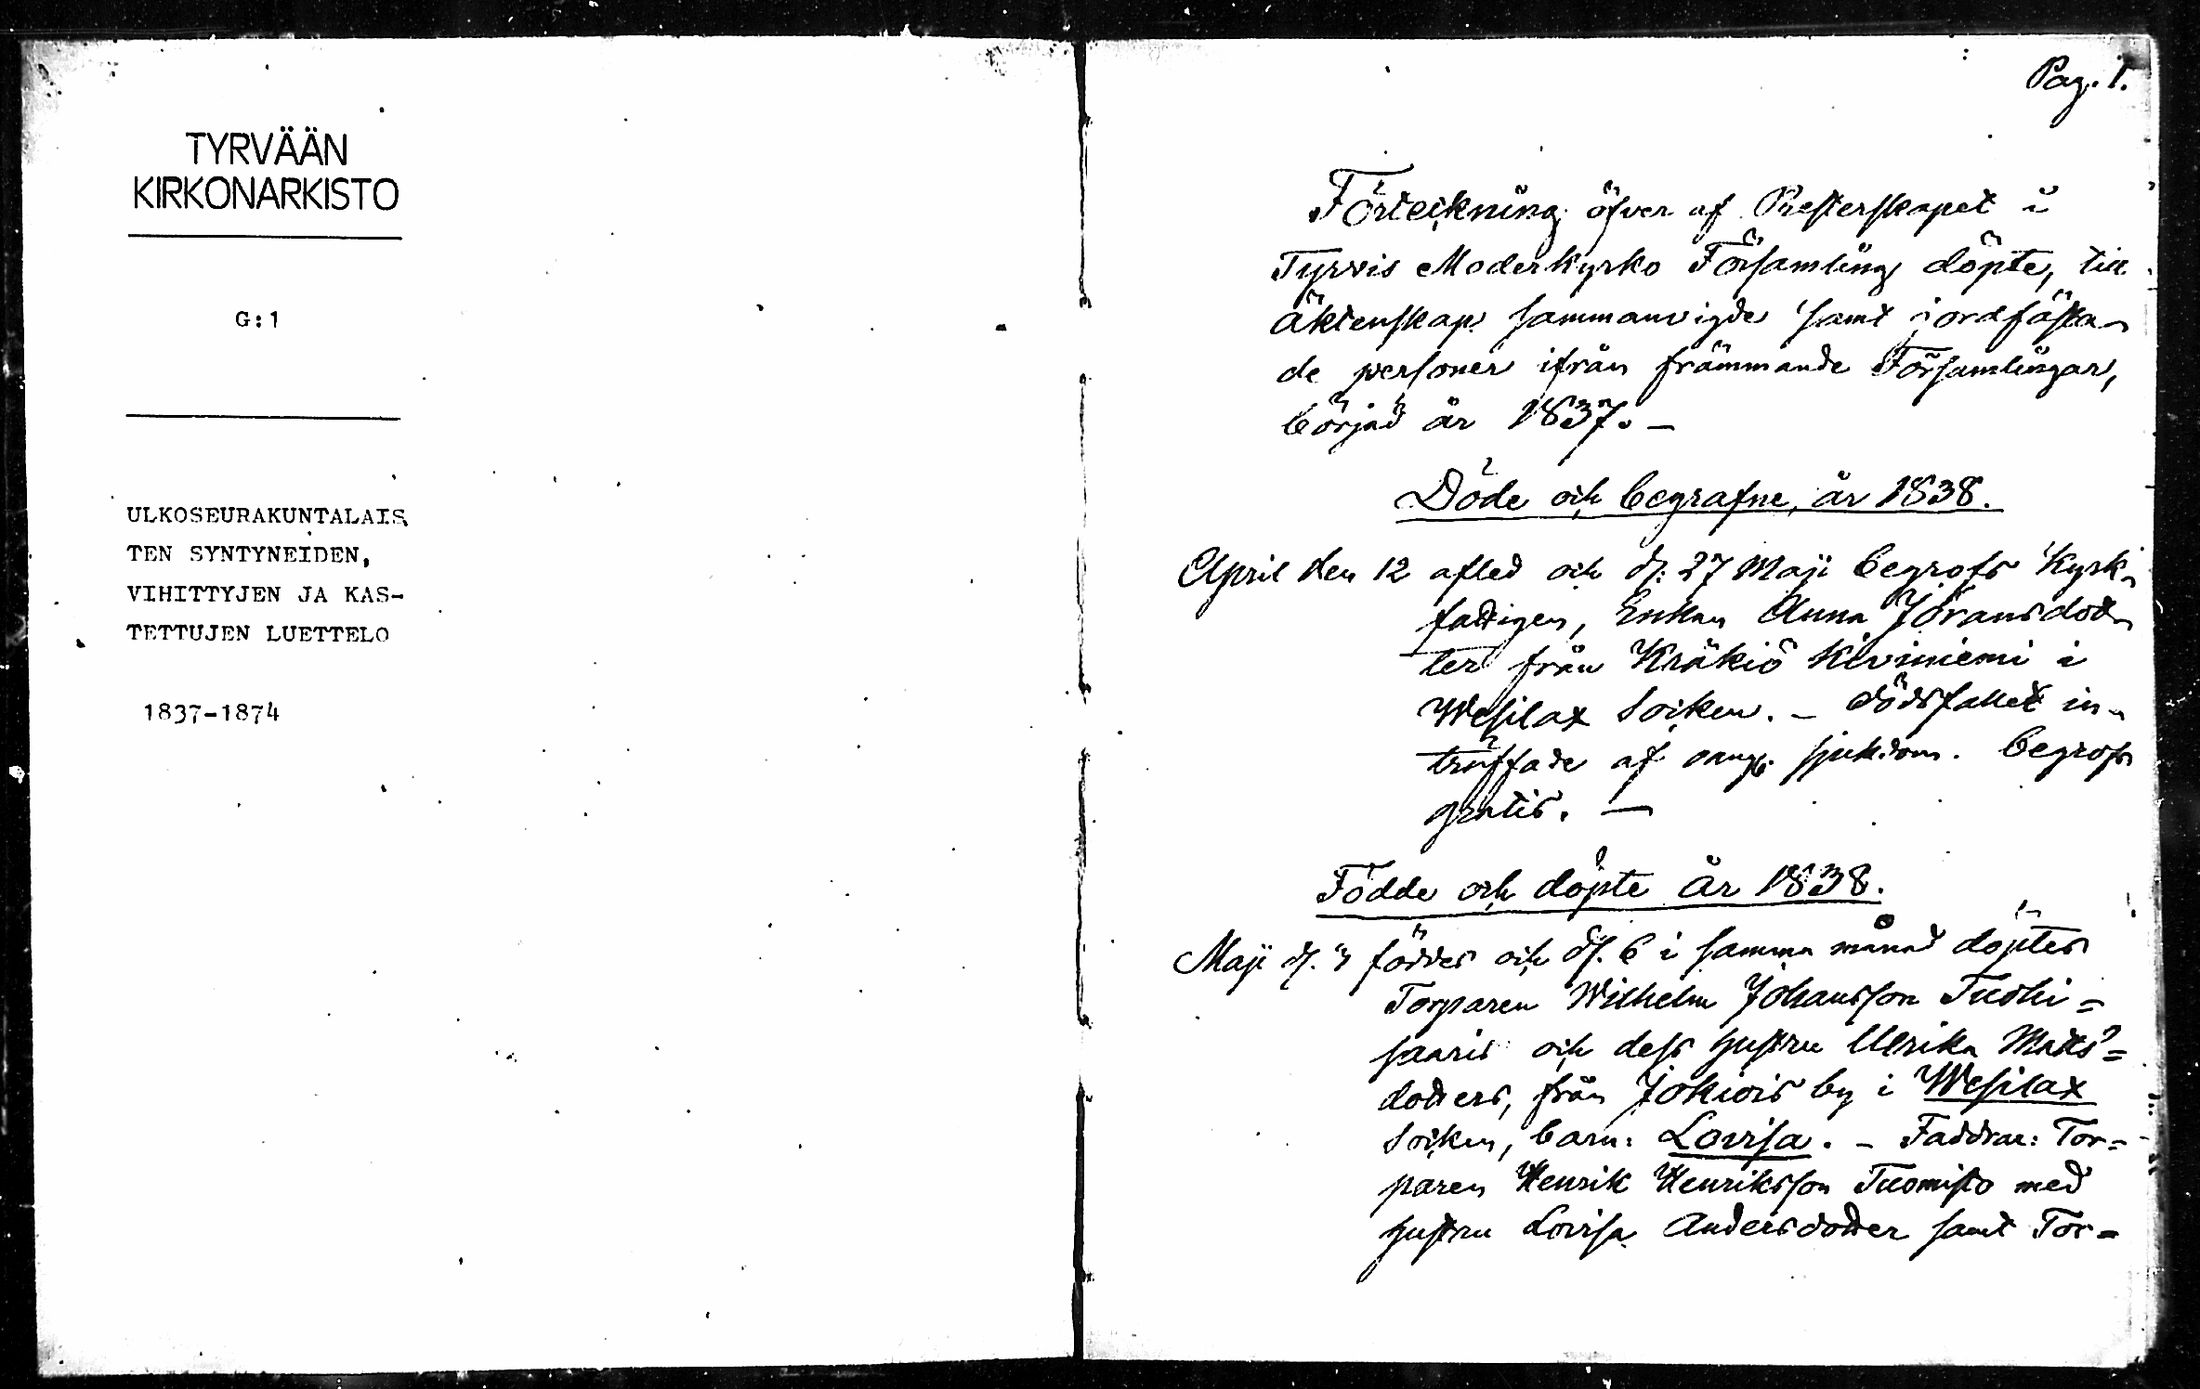 TYRVÄÄN
KIRKONARKISTO
G:1
ULKOSEURAKUNTALAIS
TEN SYNTYNEIDEN,
VIHITTYJEN JA KAS-
TETTUJEN LUETTELO
1837-1874
Pag. 1.
Förteckning öfver af Presterskapet i
Tyrvis Moderkyrko Församling döpte, till
äktenskap sammanvigde samt jordfästa-
de personer ifrån främmande Församlingar,
börjad år 1837. -
Döde och begrafne, år 1838.
April den 12 afled och d: 27 Maji begrofs Kyrk-
fattigen, Enkan Anna Jöransdot-
ter från Kräkiö Kiviniemi i
Wesilax Socken. - Dödsfallet in-
träffade af sjukdom. Begrofs
gratis. -
Födde och döpte år 1838.
Maji d. 3 föddes och d. 6 i samma månad döptes
Torparen Wilhelm Johansson Tuohi=
saaris och dess hustru Ulrika Matts=
dotters, från Jokiois by i Wesilax
Socken, barn: Lovisa. - Faddrar: Tor=
paren Henrik Henriksson Tuomisto med
hustru Lovisa Andersdotter samt Tor=